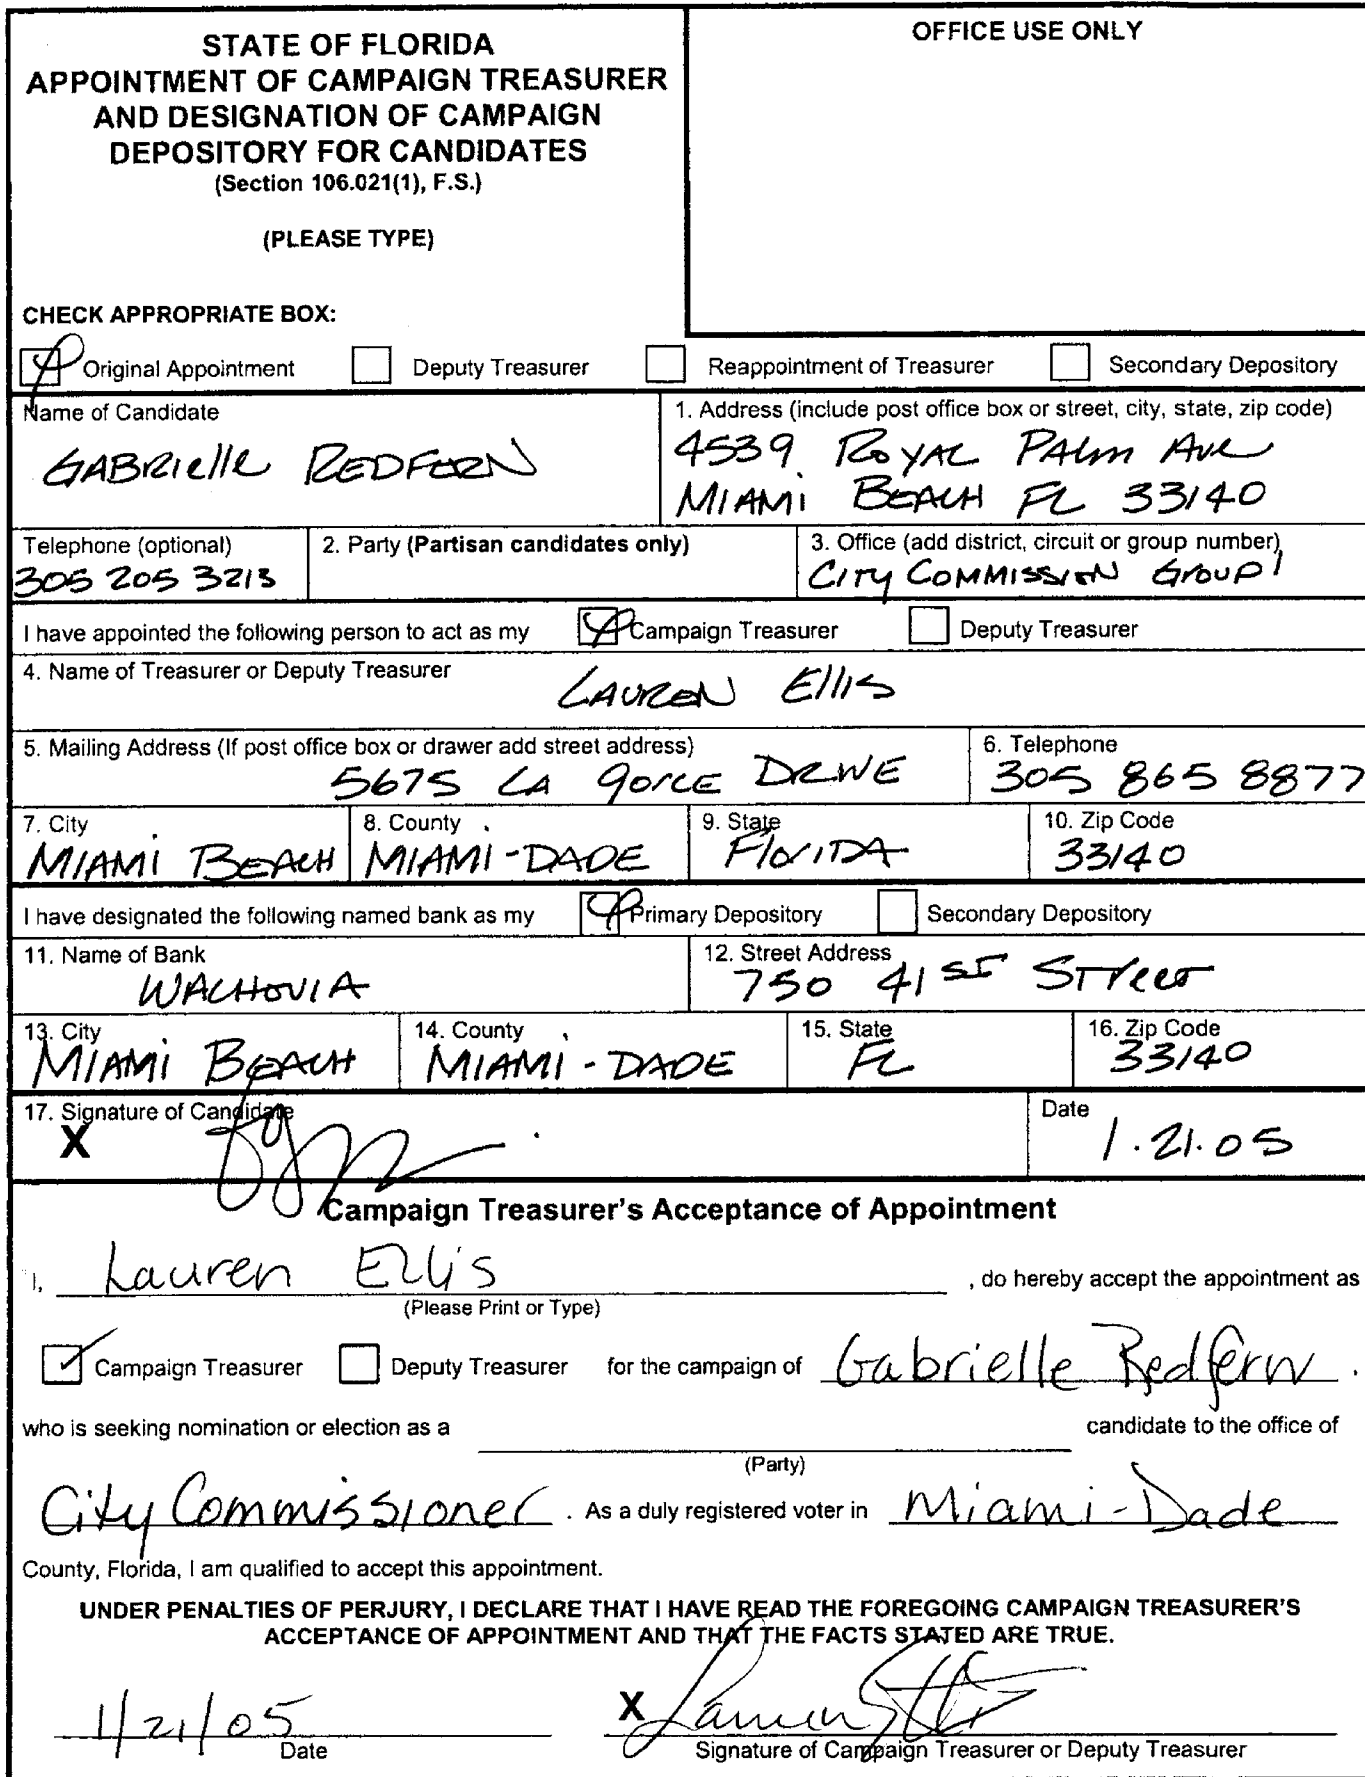 STATE OF FLORIDA
APPOINTMENT OF CAMPAIGN TREASURER
AND DESIGNATION OF CAMPAIGN
DEPOSITORY FOR CANDIDATES
(Section 106.021(1), F.S.)
(PLEASE TYPE)
OFFICE USE ONLY
CHECK APPROPRIATE BOX:
Original Appointment Deputy Treasurer Reappointment of Treasurer Secondary Depository
Name of Candidate
GABRIElle REDFERN
1. Address (include post office box or street, city, state, zip code)
4539 ROYAL PALM AVE
MIAMI BEACH FL 33140
Telephone (optional)
305 205 3213
2. Party (Partisan candidates only)
3. Office (add district, circuit or group number)
CITY COMMISSION GROUP 1
I have appointed the following person to act as my Campaign Treasurer Deputy Treasurer
4. Name of Treasurer or Deputy Treasurer
LAUREN Ellis
5. Mailing Address (If post office box or drawer add street address)
5675 LA gorce DRIVE
6. Telephone
305 865 8877
7. City
MIAMI BEACH
8. County
MIAMI-DADE
9. State
FlorIDA
10. Zip Code
33140
I have designated the following named bank as my Primary Depository Secondary Depository
11. Name of Bank
WACHOVIA
12. Street Address
750 41ST STreet
13. City
MIAMI BEACH
14. County
MIAMI-DADE
15. State
FL
16. Zip Code
33140
17. Signature of Candidate
X
Date
1.21.05
Campaign Treasurer's Acceptance of Appointment
I, Lauren Ellis , do hereby accept the appointment as
(Please Print or Type)
Campaign Treasurer Deputy Treasurer for the campaign of Gabrielle Redfern .
who is seeking nomination or election as a candidate to the office of
(Party)
City Commissioner . As a duly registered voter in Miami-Dade
County, Florida, I am qualified to accept this appointment.
UNDER PENALTIES OF PERJURY, I DECLARE THAT I HAVE READ THE FOREGOING CAMPAIGN TREASURER'S
ACCEPTANCE OF APPOINTMENT AND THAT THE FACTS STATED ARE TRUE.
1/21/05
Date
X
Signature of Campaign Treasurer or Deputy Treasurer